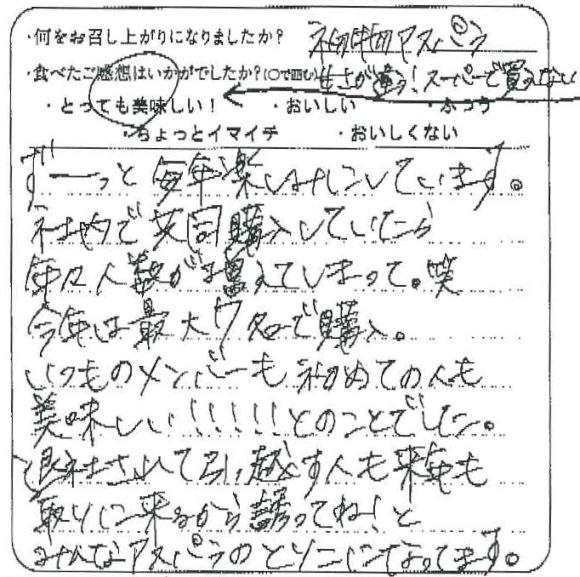 ・何をお召し上がりになりましたか? 初物アスパラ
・食べたご感想はいかがでしたか?(○で囲む) 甘さが違う!スーパーで買えない
・とっても美味しい! ・おいしい ・ふつう
・ちょっとイマイチ ・おいしくない
ずーっと毎年楽しみにしています。
社内で共同購入していたら
年々人数が増えてしまって。笑
今年は最大7名で購入。
いつものメンバーも初めての人も
美味しい!!!!!!とのことでした。
退社されて引っ越す人も来年も
取りに来るから誘ってね!と
みんなアスパラのとりこになってます。